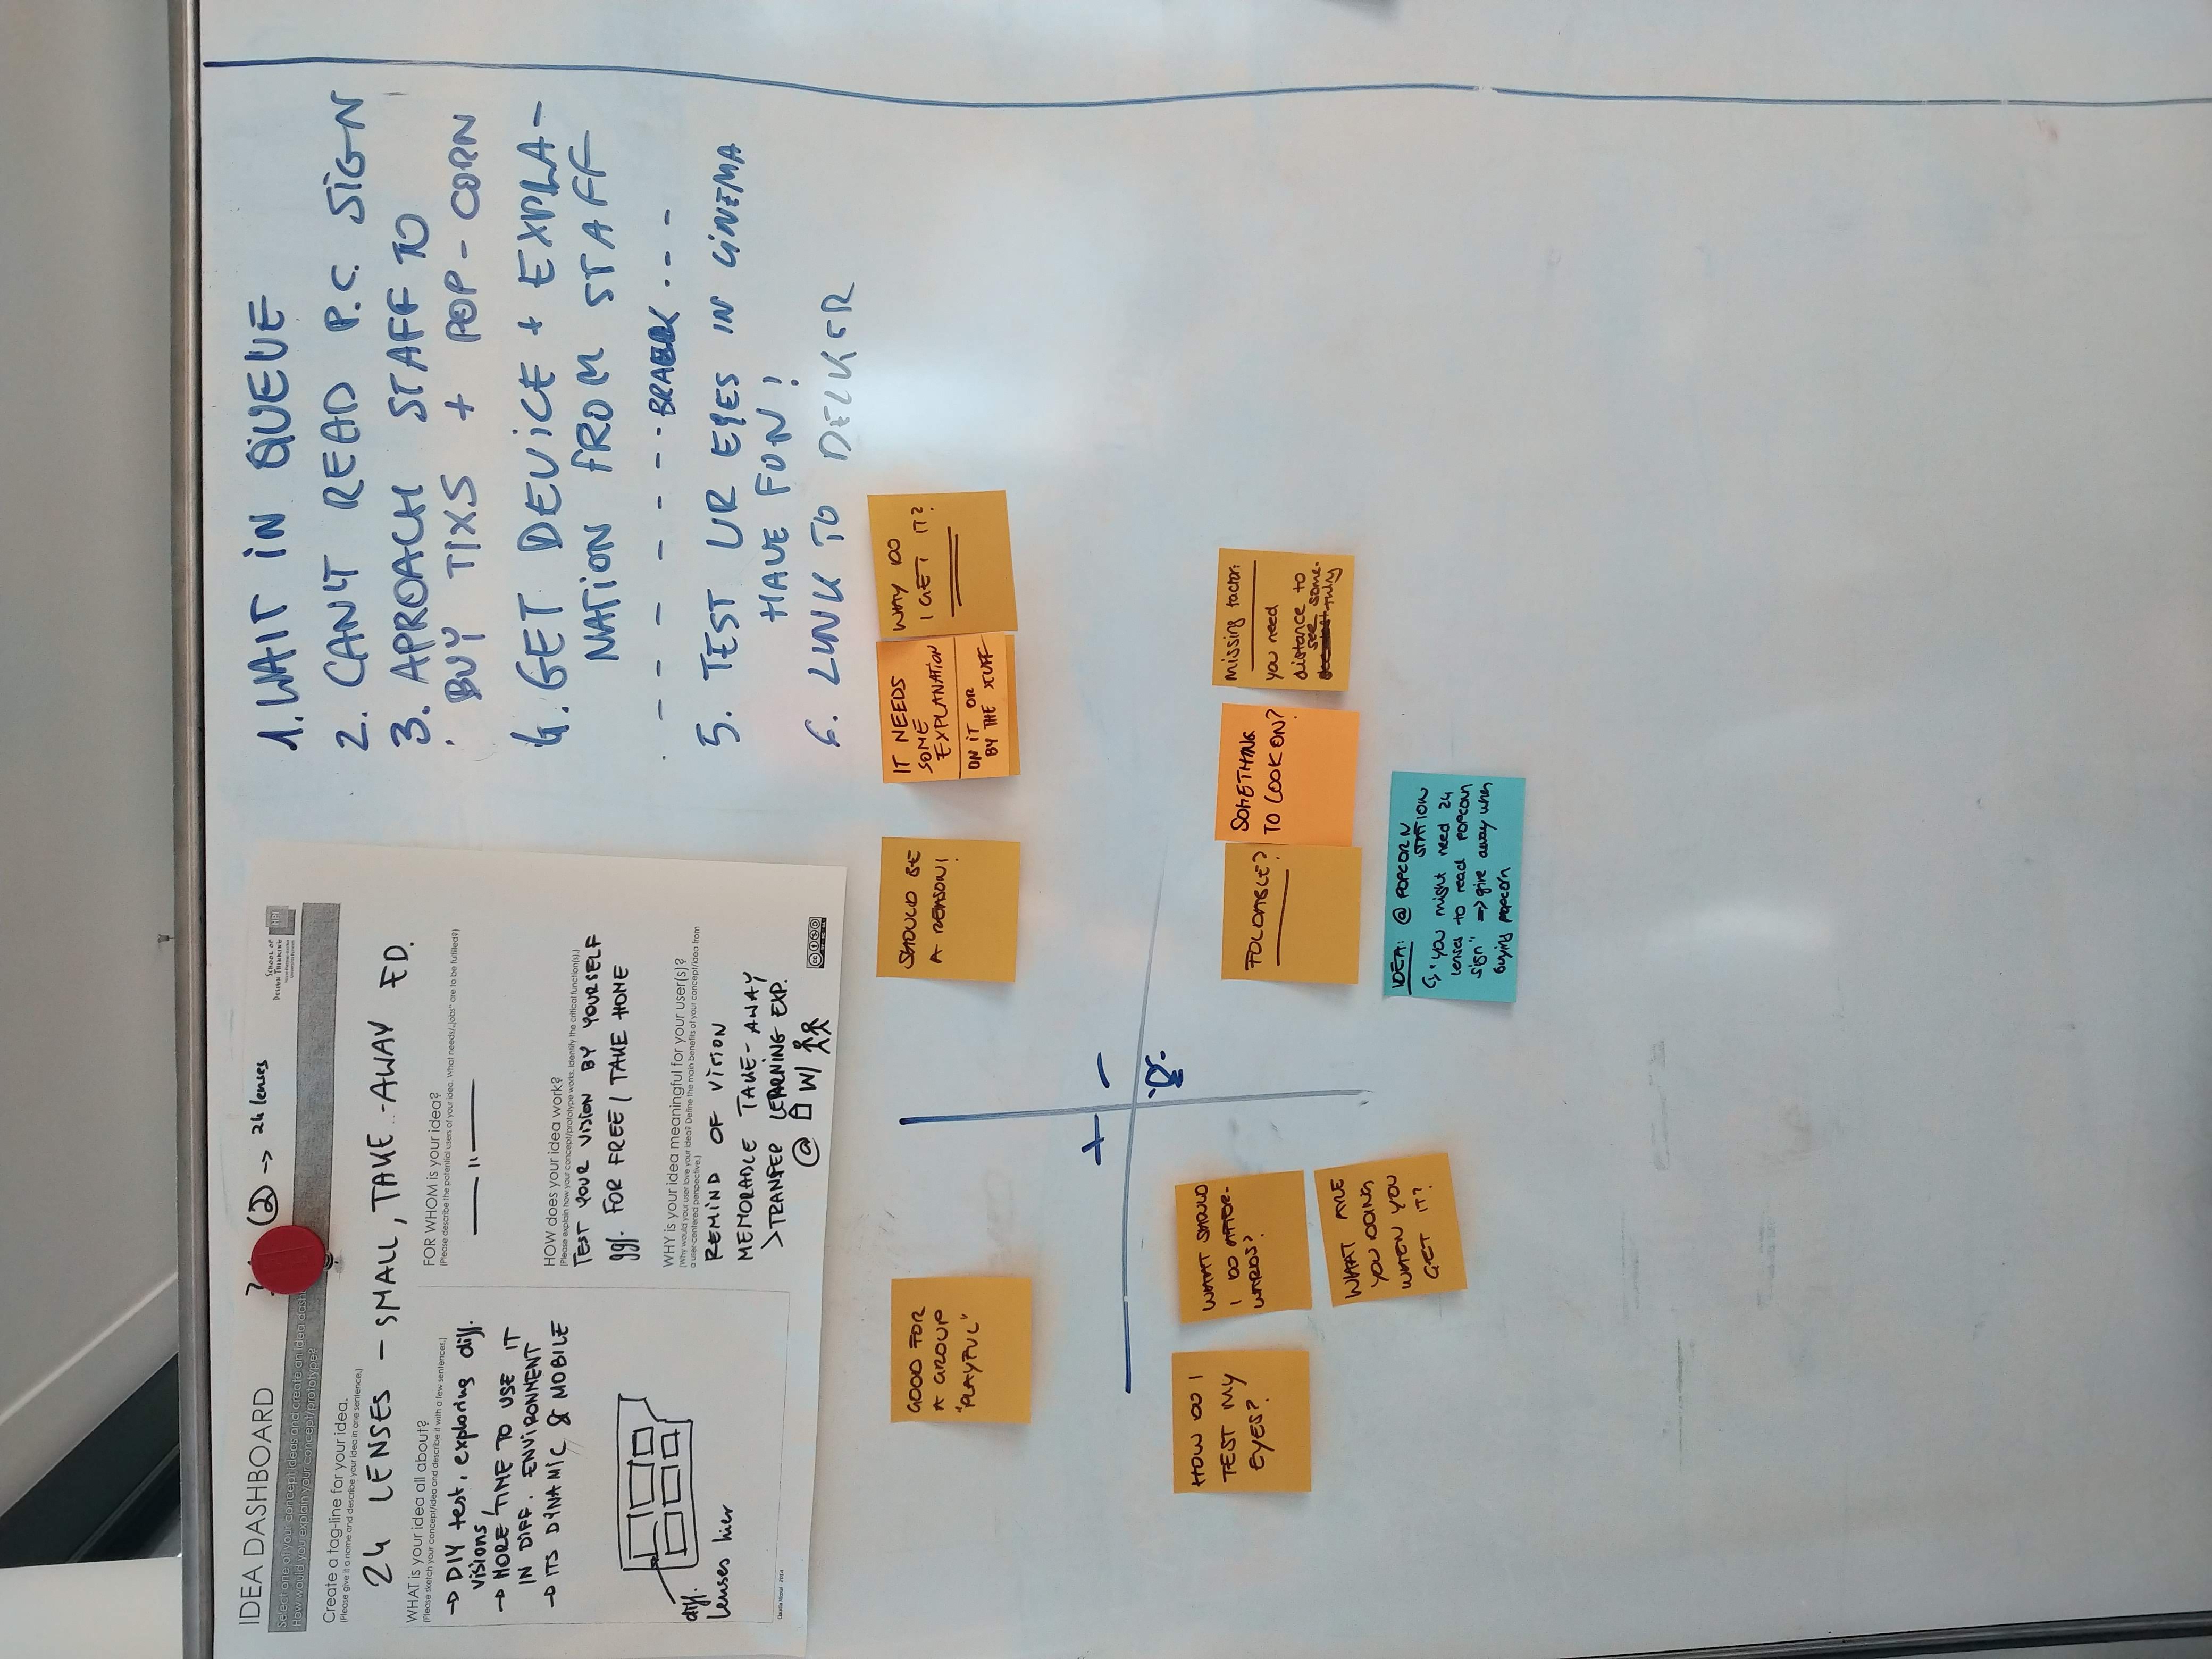 IDEA DASHBOARD
(2) → 24 lenses
SCHOOL OF
DESIGN THINKING
HPI
Select one of your concept ideas and create an idea dash
How would you explain your concept/prototype?
Create a tag-line for your idea.
(Please give it a name and describe your idea in one sentence.)
24 LENSES – SMALL, TAKE-AWAY ED.
WHAT is your idea all about?
(Please sketch your concept/idea and describe it with a few sentences.)
→ DIY test, exploring diff.
visions,
→ MORE TIME TO USE IT
IN DIFF. ENVIRONMENT
→ ITS DYNAMIC & MOBILE
diff.
lenses hier
Claudia Nicolai - 2014
FOR WHOM is your idea?
(Please describe the potential users of your idea. What needs/„jobs" are to be fulfilled?)
— " —
HOW does your idea work?
(Please explain how your concept/prototype works. Identify the critical function(s).)
TEST YOUR VISION BY YOURSELF
ggf. FOR FREE / TAKE HOME
WHY is your idea meaningful for your user(s)?
(Why would your user love your idea? Define the main benefits of your concept/idea from
a user-centered perspective.)
REMIND OF VISION
MEMORABLE TAKE-AWAY
>TRANFER LEARNING EXP.
@ W/
1. WAIT IN QUEUE
2. CAN'T READ P.C. SIGN
3. APROACH STAFF TO
BUY TIXS + POP-CORN
4. GET DEVICE + EXPLA-
NATION FROM STAFF
5. TEST UR EYES IN CINEMA
HAVE FUN!
6. LINK TO
GOOD FOR
A GROUP
"PLAYFUL"
SHOULD BE
A REASON!
IT NEEDS
SOME
EXPLANATION
ON IT OR
BY THE STUFF
WHY DO
I GET IT?
+
-
HOW DO I
TEST MY
EYES?
WHAT SHOULD
I DO AFTER-
WARDS?
WHAT ARE
YOU DOING
WHEN YOU
GET IT?
FOLDABLE?
SOMETHING
TO LOOK ON?
missing factor:
you need
distance to
see some-
thing
IDEA: @ POPCORN
STATION
↳ "you might need 24
lenses to read popcorn
sign" ⇒ give away when
buying popcorn